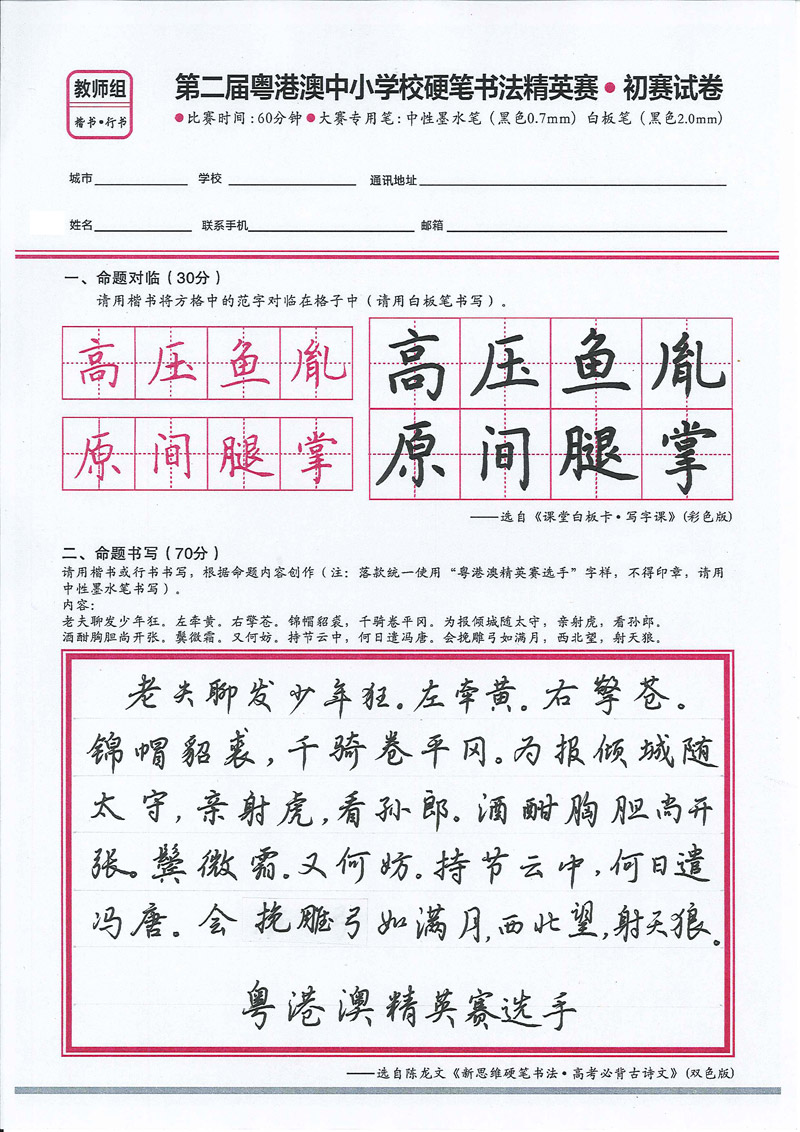 教师组
楷书•行书
第二届粤港澳中小学校硬笔书法精英赛•初赛试卷
●比赛时间:60分钟●大赛专用笔:中性墨水笔（黑色0.7mm）白板笔（黑色2.0mm）
城市 学校 通讯地址
姓名 联系手机 邮箱
一、命题对临（30分）
请用楷书将方格中的范字对临在格子中（请用白板笔书写）。
高压鱼胤
原间腿掌
高压鱼胤
原间腿掌
——选自《课堂白板卡·写字课》(彩色版)
二、命题书写（70分）
请用楷书或行书书写，根据命题内容创作（注：落款统一使用“粤港澳精英赛选手”字样，不得印章，请用
中性墨水笔书写）。
内容：
老夫聊发少年狂。左牵黄。右擎苍。锦帽貂裘，千骑卷平冈。为报倾城随太守，亲射虎，看孙郎。
酒酣胸胆尚开张。鬓微霜。又何妨。持节云中，何日遣冯唐。会挽雕弓如满月，西北望，射天狼。
老夫聊发少年狂。左牵黄。右擎苍。
锦帽貂裘，千骑卷平冈。为报倾城随
太守，亲射虎，看孙郎。酒酣胸胆尚开
张。鬓微霜。又何妨。持节云中，何日遣
冯唐。会挽雕弓如满月，西北望，射天狼。
粤港澳精英赛选手
——选自陈龙文《新思维硬笔书法·高考必背古诗文》(双色版)